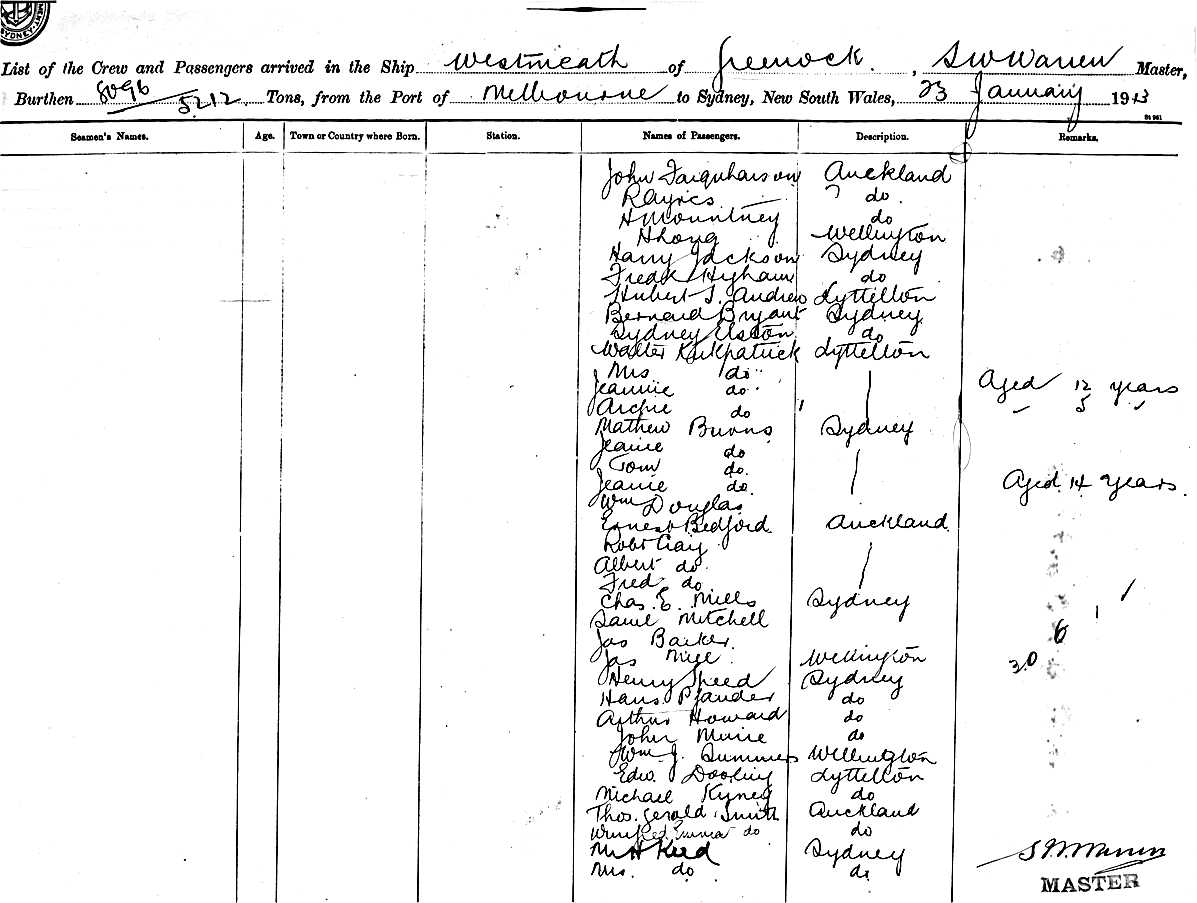 SYDNEY
List of the Crew and Passengers arrived in the Ship Westmeath of Greenock. , S W Warren Master,
Burthen 8096 / 5212 Tons, from the Port of Melbourne to Sydney, New South Wales, 23 January 1913
Seamen's Names. Age. Town or Country where Born. Station. Names of Passengers. Description. Remarks.
John Farquharson Auckland
do.
H Mountney do
H Long Wellington
Harry Jackson Sydney
Fredk Hyham do
Hubert J. Andrew Lyttelton
Bernard Bryant Sydney
Sydney Elston do
Walter Kirkpatrick Lyttelton
Mrs do
Jeannie do Aged 12 years
Archie do 5
Mathew Burns Sydney
Jeanie do
Tom do.
Jeanie do. Aged 14 years.
Wm Douglas
Ernest Bedford Auckland
Robt
Albert do.
Fred do
Chas. E. Mills Sydney
Saml Mitchell
Jas Barker. 6
Jas Wellington 30
Henry Speed Sydney
Hans Pfander do
Arthur Howard do
John do
Wm J. Summers Wellington
Edw. Dooley Lyttelton
Michael do
Thos. Gerald Smith Auckland
Winifred Emma do do
Mr H Reed Sydney S W Warren
Mrs. do do
MASTER